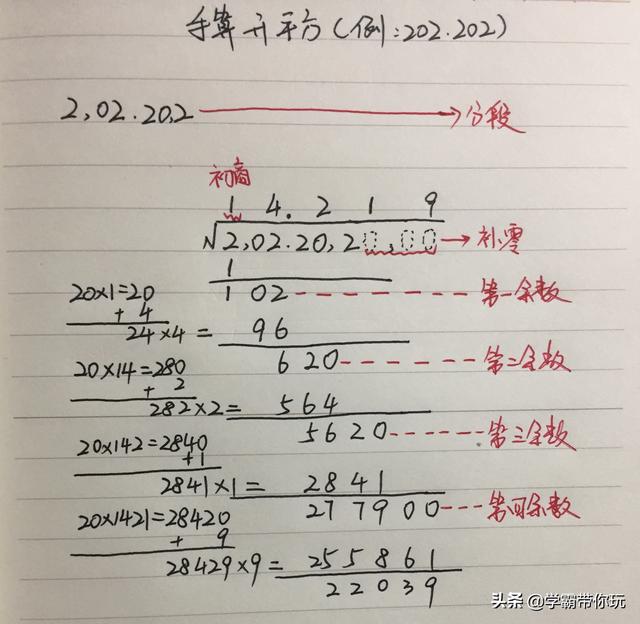 手算开平方(例:202.202)
2,02.20,2 → 分段
初商
1 4. 2 1 9
√2,02.20,20,00 → 补零
1
1 02 第一余数
20×1=20
+ 4
24×4= 96
6 20 第二余数
20×14=280
+ 2
282×2= 564
5620 第三余数
20×142=2840
+1
2841×1= 2841
277900 第四余数
20×1421=28420
+ 9
28429×9= 255861
22039
头条 @学霸带你玩